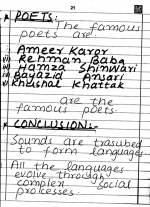 21
* POETS:
The famous
poets are.
i) Ameer Karor
ii) Rehman Baba
iii) Hamza Shinwari
iv) Bayazid Ansari
v) Khushal Khattak
are the
famous poets.
* CONCLUSION:
Sounds are trasubed
to form languages
All the languages
evolve through
complex social
processes.